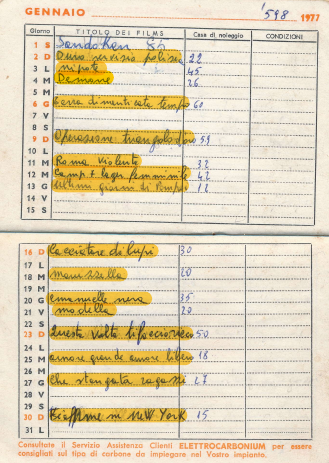 GENNAIO 598 1977
Giorno TITOLO DEI FILMS Casa di noleggio CONDIZIONI
1 S Sandokan
2 D Duro servizio polizia 22
3 L nipote 45
4 M 26
5 M
6 G Terra dimenticata tempo 60
7 V
8 S
9 D Operazione triangolo d'oro 59
10 L
11 M Roma violenta 32
12 M Camp. + lager femminile 42
13 G ultimi giorni di Pompei 12
14 V
15 S
16 D Cacciatore di lupi 30
17 L
18 M 20
19 M
20 G emanuelle nera 35
21 V modella 20
22 S
23 D questa volta ti faccio ricco 50
24 L
25 M amore grande amore libero 18
26 M
27 G Che stangata ragazzi 27
28 V
29 S
30 D in NEW YORK 15
31 L
Consultate il Servizio Assistenza Clienti ELETTROCARBONIUM per essere
consigliati sul tipo di carbone da impiegare nel Vostro impianto.